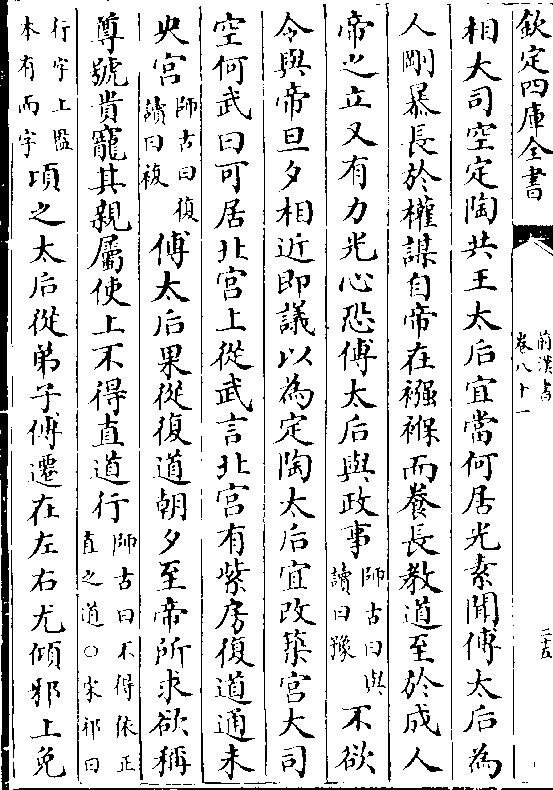 欽定四庫全書
前漢書
卷八十一
二十五
相大司空定陶共王太后宜當何居光素聞傅太后為
人剛暴長於權謀自帝在襁褓而養長教道至於成人
帝之立又有力光心恐傅太后與政事
師古曰與
讀曰豫
不欲
令與帝旦夕相近即議以為定陶太后宜改築宮大司
空何武曰可居北宮上從武言北宮有紫房復道通未
央宮
師古曰復
讀曰複
傅太后果從復道朝夕至帝所求欲稱
尊號貴寵其親屬使上不得直道行
師古曰不得依正
直之道○宋祁曰
行字上監
本有而字
頃之太后從弟子傅遷在左右尤傾邪上免